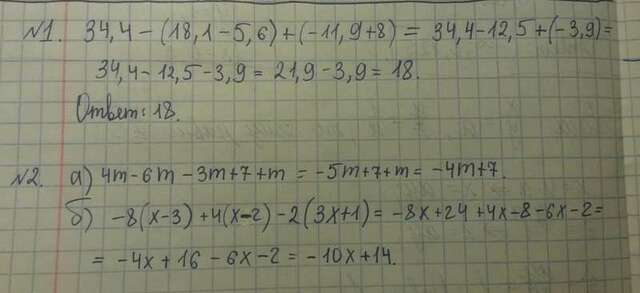 №1. 34,4 - (18,1 - 5,6) + (-11,9 + 8) = 34,4 - 12,5 + (-3,9) =
34,4 - 12,5 - 3,9 = 21,9 - 3,9 = 18.
Ответ: 18.
№2. а) 4m - 6m - 3m + 7 + m = -5m + 7 + m = -4m + 7.
б) -8(x-3) + 4(x-2) - 2(3x+1) = -8x + 24 + 4x - 8 - 6x - 2 =
= -4x + 16 - 6x - 2 = -10x + 14.